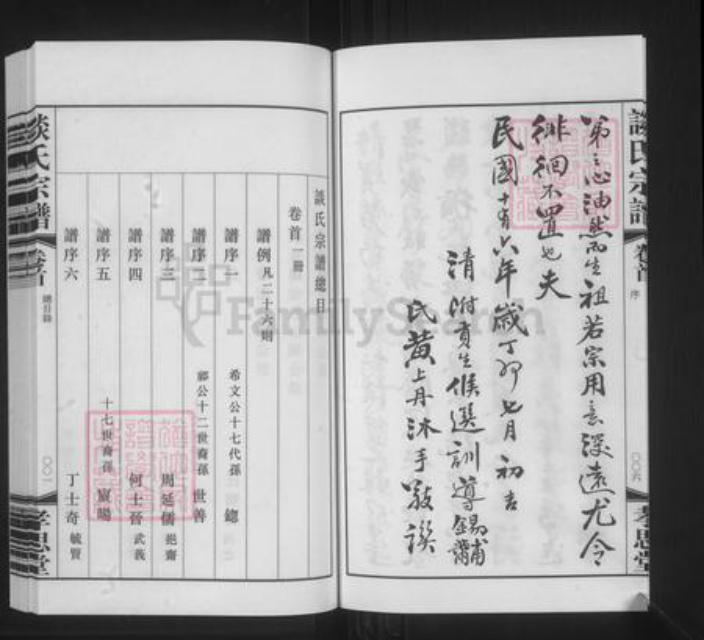 談氏宗譜
卷首
序
〇〇六
孝思堂
弟之心油然而生祖若宗用意深遠尤令
徘徊不置也夫
民國十有六年歲丁卯七月初吉
清附貢生候選訓導錫黼
氏黃上丹沐手敬譔
談氏宗譜總目
卷首一冊
譜例凡二十六則
譜序一 希文公十七代孫 總
譜序二 郡公十二世裔孫 世善
譜序三 周延儒挹齋
譜序四 何士晉武莪
譜序五 十七世裔孫
譜序六 丁士奇毓賢
談氏宗譜
卷首
總目錄
〇〇一
孝思堂
FamilySearch